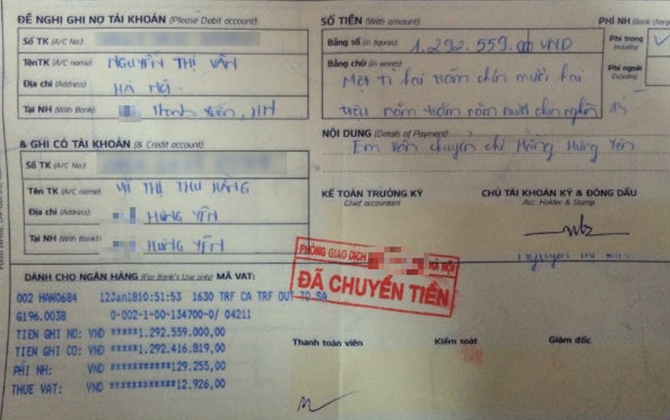 ĐỀ NGHỊ GHI NỢ TÀI KHOẢN (Please Debit account):
Số TK (A/C No.)
Tên TK (A/C name) NGUYỄN THỊ VÂN
Địa chỉ (Address) Hà Nội
Tại NH (With Bank) Thanh Xuân, HN
SỐ TIỀN (With amount)
Bằng số (In figures) 1.292.559.000 VND
Bằng chữ (In words) Một tỉ hai trăm chín mươi hai
triệu năm trăm năm mươi chín nghìn
PHÍ NH
Phí trong
Including
Phí ngoài
Excluding
NỘI DUNG (Details of Payment)
Em Vân chuyển chị Hằng Hưng Yên
& GHI CÓ TÀI KHOẢN (& Credit account):
Số TK (A/C No.)
Tên TK (A/C name) VI THỊ THU HẰNG
Địa chỉ (Address) HƯNG YÊN
Tại NH (With Bank) HƯNG YÊN
KẾ TOÁN TRƯỞNG KÝ
Chief accountant
CHỦ TÀI KHOẢN KÝ & ĐÓNG DẤU
Acc. Holder & Stamp
PHÒNG GIAO DỊCH HÀ NỘI
ĐÃ CHUYỂN TIỀN
DÀNH CHO NGÂN HÀNG (For Bank's Use only) MÃ VAT:
002 HAN0684 12Jan1810:51:53 1630 TRF CA TRF OUT TO SA
G196.0038 0-002-1-00-134700-0/ 04211
TIEN GHI NO: VND *****1.292.559.000,00
TIEN GHI CO: VND *****1.292.416.819,00
PHI NH: VND ***********129.255,00
THUE VAT: VND ************12.926,00
Thanh toán viên
Kiểm soát
Giám đốc